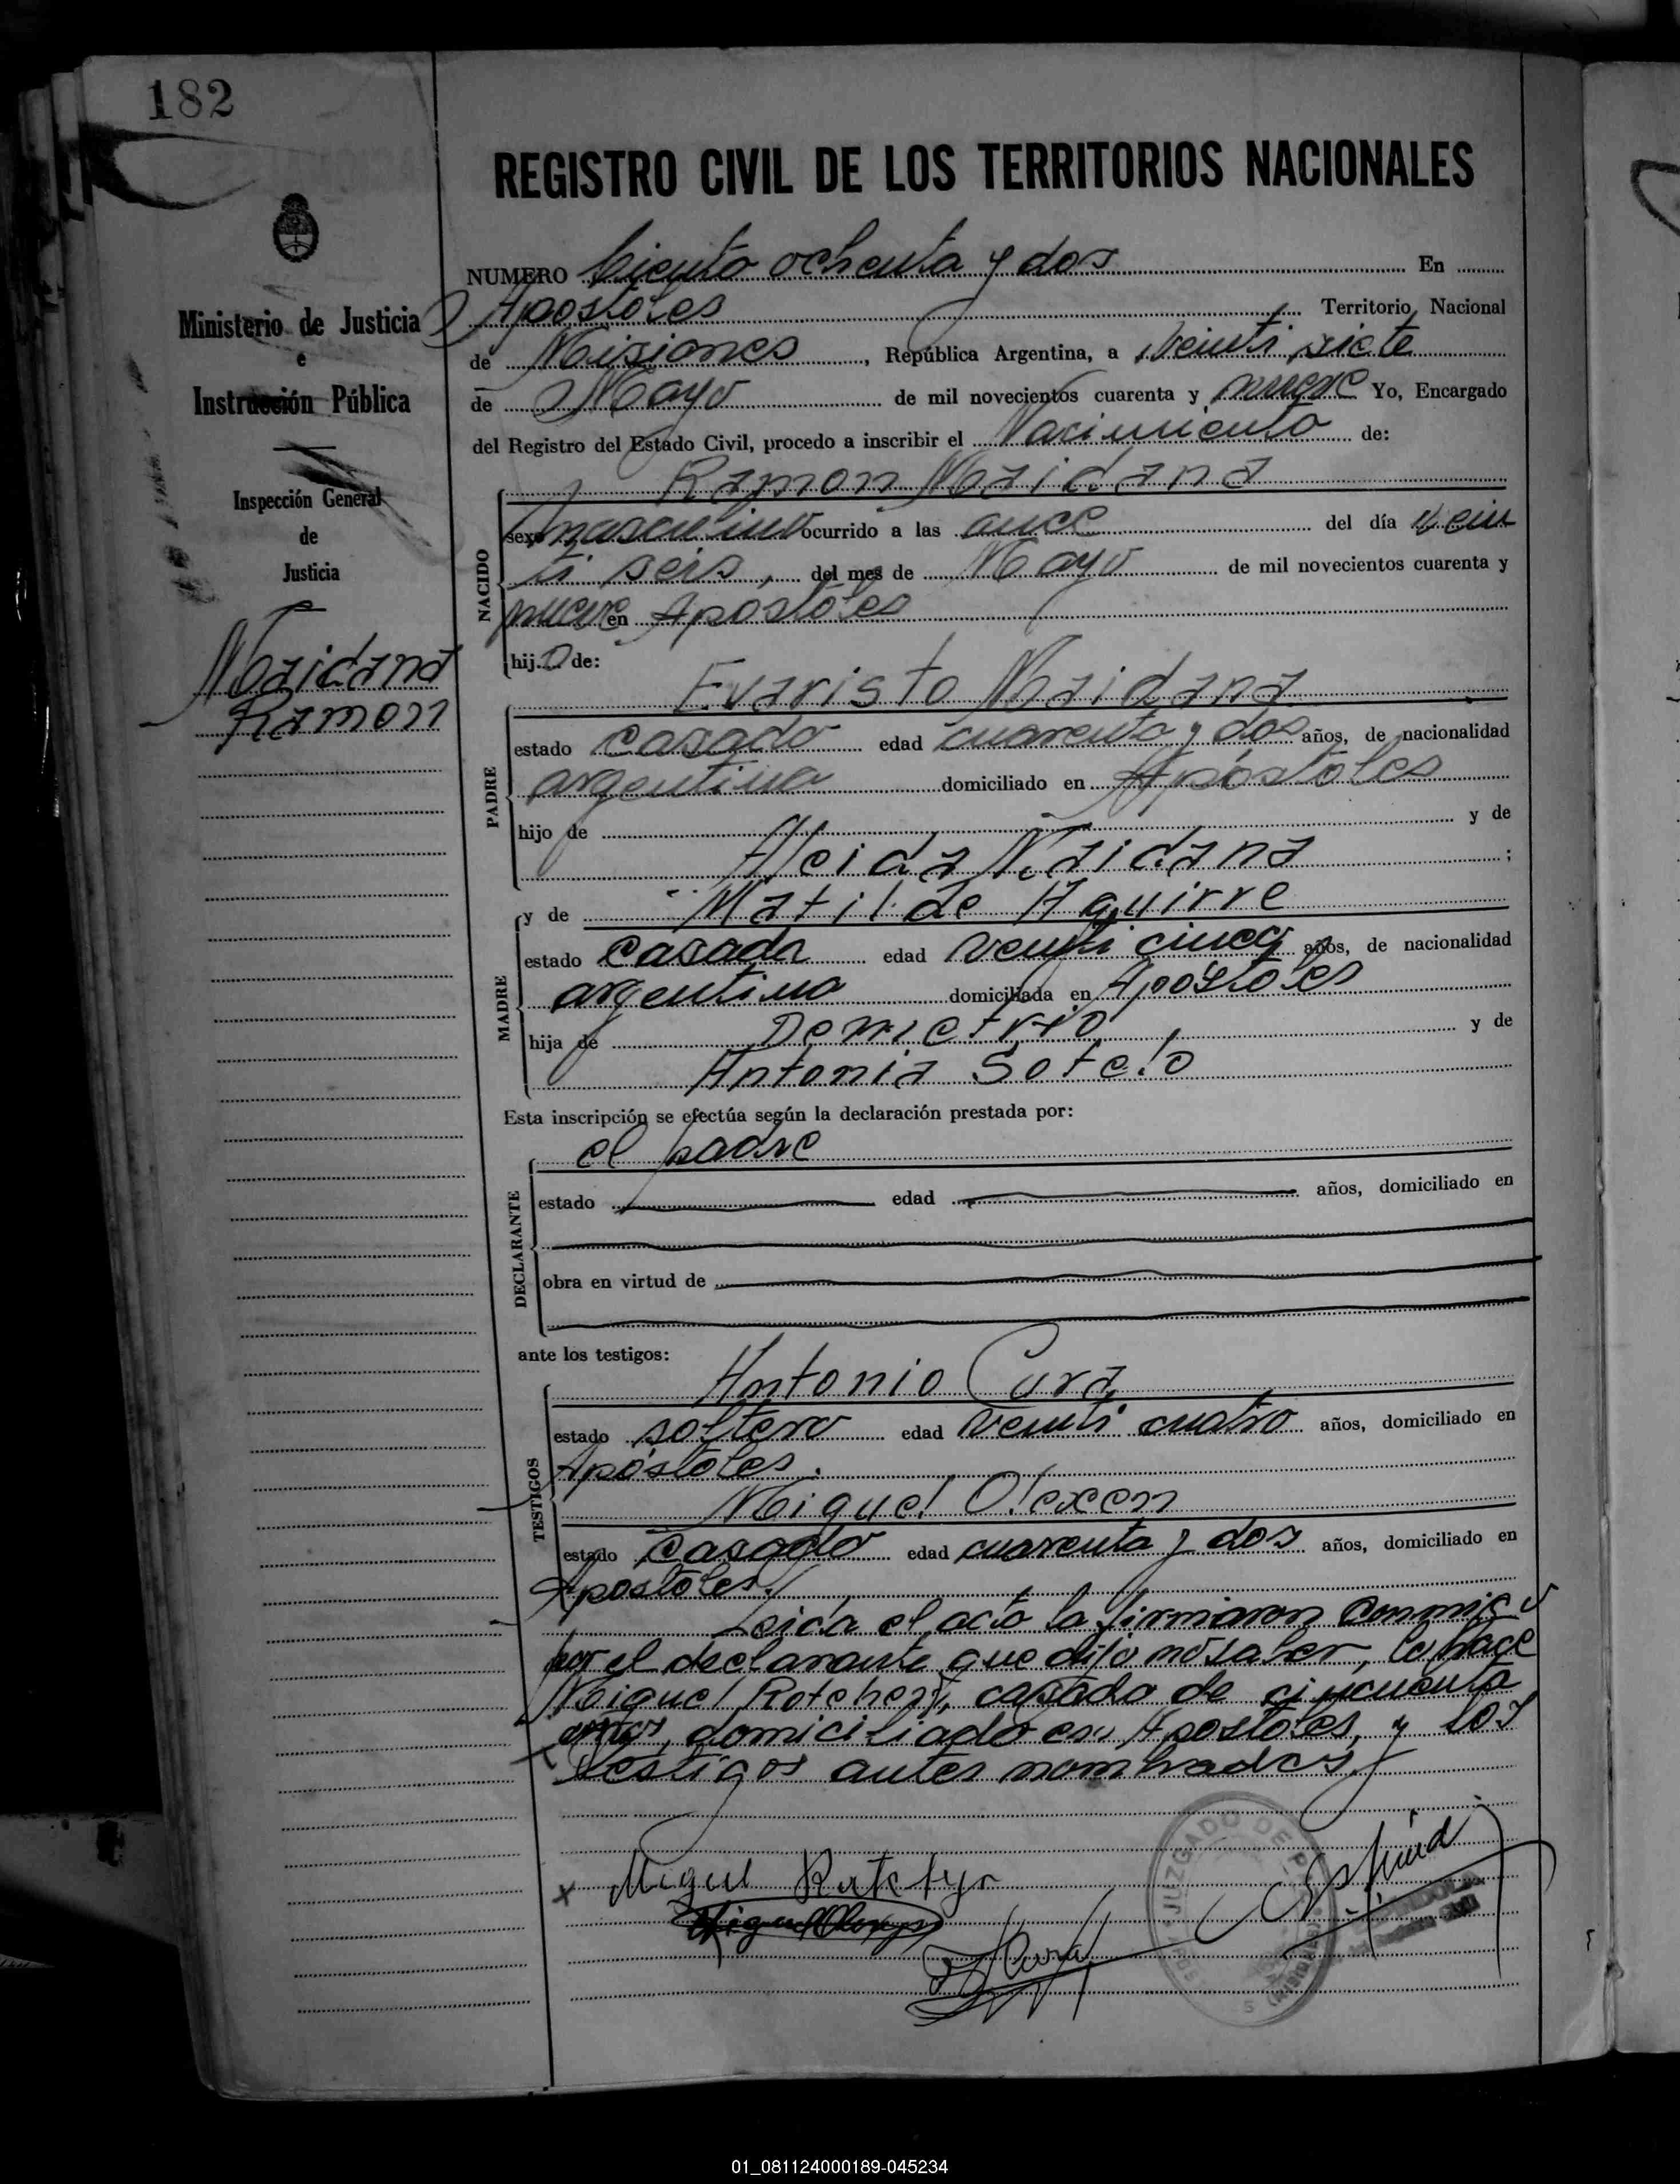 182
REGISTRO CIVIL DE LOS TERRITORIOS NACIONALES
Ministerio de Justicia
e
Instrucción Pública
Inspección General
de
Justicia
Maidana
Ramon
NUMERO Ciento ochenta y dos En
Apostoles Territorio Nacional
de Misiones, República Argentina, a Veinti siete
de Mayo de mil novecientos cuarenta y nueve Yo, Encargado
del Registro del Estado Civil, procedo a inscribir el Nacimiento de:
Ramon Maidana
NACIDO
sexo masculino ocurrido a las once del día vein
ti seis, del mes de Mayo de mil novecientos cuarenta y
nueve en Apóstoles
hijo de:
Evaristo Maidana
PADRE
estado casado edad cuarenta y dos años, de nacionalidad
argentina domiciliado en Apóstoles
hijo de y de
Maidana ;
y de Matilde Aguirre
MADRE
estado casada edad veinti cinco años, de nacionalidad
argentina domiciliada en Apóstoles
hija de Demetrio y de
Antonia Sotelo
Esta inscripción se efectúa según la declaración prestada por:
el padre
DECLARANTE
estado edad años, domiciliado en
obra en virtud de
ante los testigos:
Antonio Cura
TESTIGOS
estado soltero edad veinti cuatro años, domiciliado en
Apóstoles.
Miguel Olexen
estado casado edad cuarenta y dos años, domiciliado en
Apostoles.
Leida el acta la firmaron conmigo
por el declarante que dijo no saber, lo hace
Miguel casado de cincuenta
años, domiciliado en Apostoles, y los
testigos antes nombrados
x Miguel
JUZGADO DE P
01_081124000189-045234